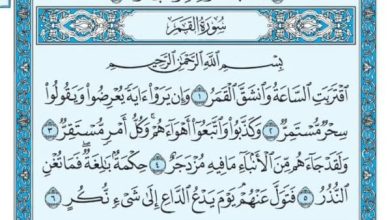 سُورَةُ القَمَرِ
بِسْمِ اللَّهِ الرَّحْمَٰنِ الرَّحِيمِ
اقْتَرَبَتِ السَّاعَةُ وَانشَقَّ الْقَمَرُ ١ وَإِن يَرَوْا آيَةً يُعْرِضُوا وَيَقُولُوا
سِحْرٌ مُّسْتَمِرٌّ ٢ وَكَذَّبُوا وَاتَّبَعُوا أَهْوَاءَهُمْ وَكُلُّ أَمْرٍ مُّسْتَقِرٌّ ٣
وَلَقَدْ جَاءَهُم مِّنَ الْأَنبَاءِ مَا فِيهِ مُزْدَجَرٌ ٤ حِكْمَةٌ بَالِغَةٌ فَمَا تُغْنِ
النُّذُرُ ٥ فَتَوَلَّ عَنْهُمْ يَوْمَ يَدْعُ الدَّاعِ إِلَىٰ شَيْءٍ نُّكُرٍ ٦